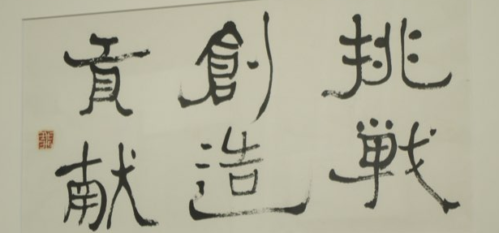 挑戦
創造
貢献